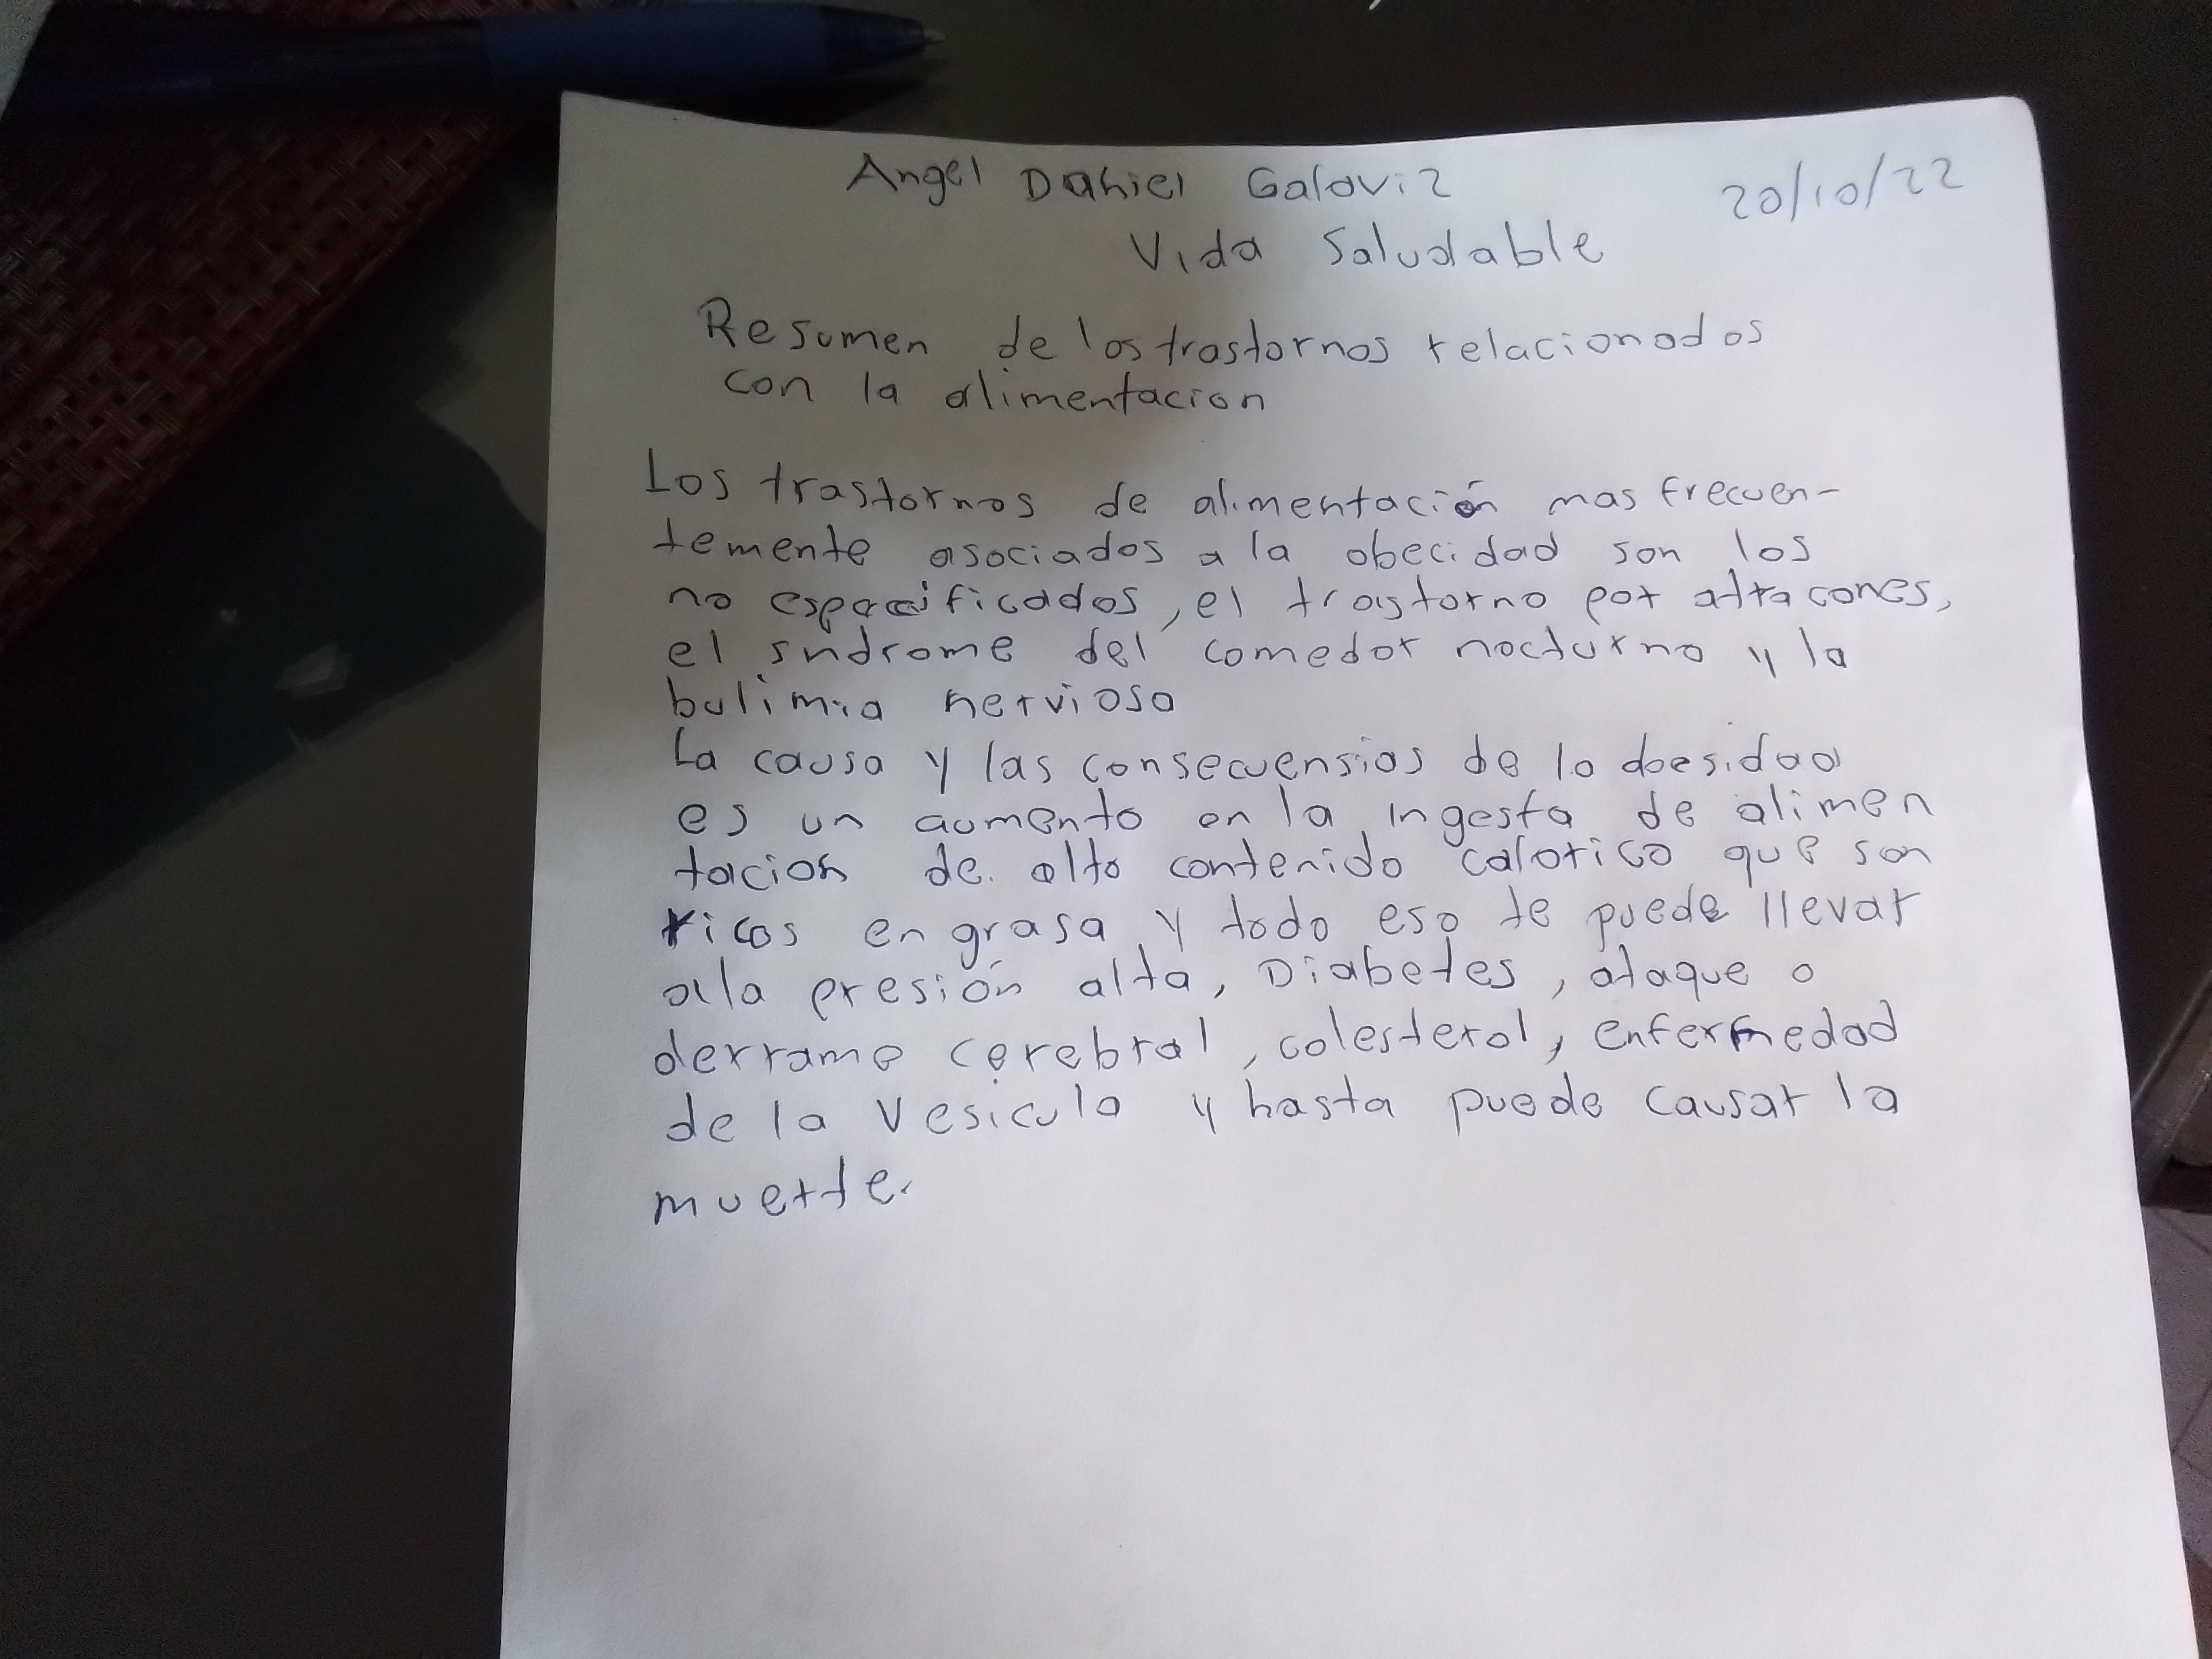 Angel Daniel Galaviz
20/10/22
Vida Saludable
Resumen de los trastornos relacionados
con la alimentacion
Los trastornos de alimentación mas frecuen-
temente asociados a la obecidad son los
no especificados, el trastorno por atracones,
el sndrome del comedor nocturno y la
bulimia nerviosa
La causa y las consecuensias de la obesidad
es un aumento en la ingesta de alimen
tacion de alto contenido calorico que son
ricos en grasa y todo eso te puede llevar
ala presión alta, Diabetes, ataque o
derrame cerebral, colesterol, enfermedad
de la vesicula y hasta puede causar la
muerte.